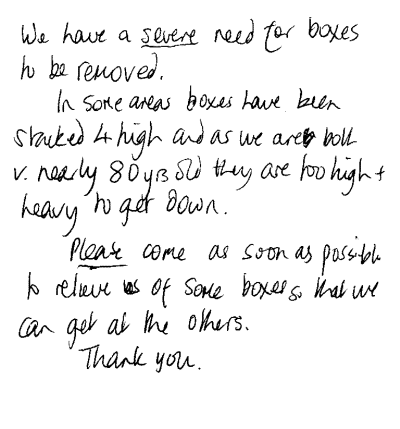 We have a severe need for boxes
to be removed.
In some areas boxes have been
stacked 4 high and as we are both
v. nearly 80 yrs old they are too high +
heavy to get down.
Please come as soon as possible
to relieve us of some boxes so that we
can get at the others.
Thank you.